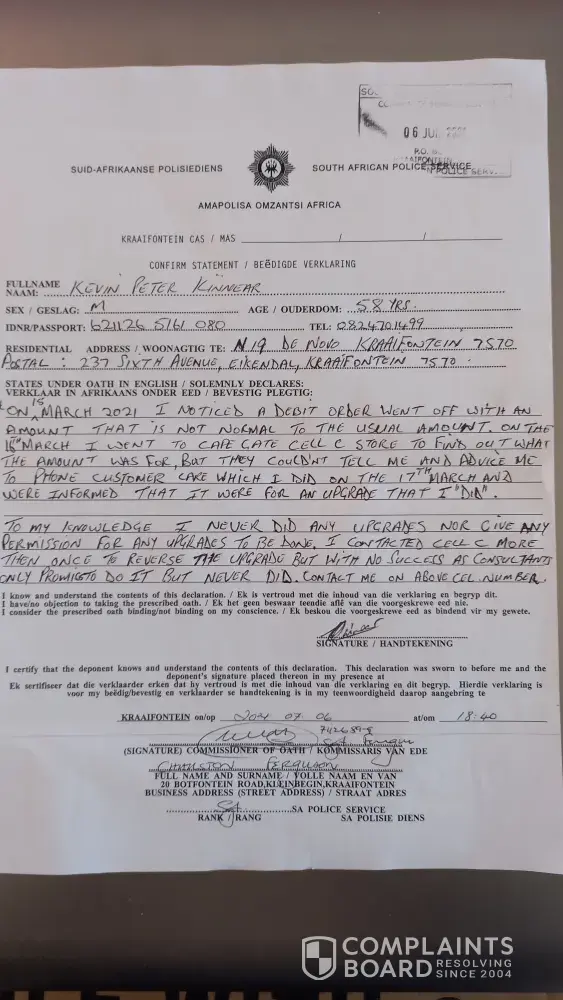 06 JUL
P.O. B
KRAAIFONTEIN
POLICE SERV
SUID-AFRIKAANSE POLISIEDIENS
SOUTH AFRICAN POLICE SERVICE
AMAPOLISA OMZANTSI AFRICA
KRAAIFONTEIN CAS / MAS / /
CONFIRM STATEMENT / BEËDIGDE VERKLARING
FULLNAME
NAAM: KEVIN PETER KINNEAR
SEX / GESLAG: M AGE / OUDERDOM: 58 YRS.
IDNR/PASSPORT: 621126 5161 080 TEL: 0824701499
RESIDENTIAL ADDRESS / WOONAGTIG TE: N19 DE NOVO KRAAIFONTEIN 7570
POSTAL: 237 SIXTH AVENUE, EIKENDAL, KRAAIFONTEIN 7570.
STATES UNDER OATH IN ENGLISH / SOLEMNLY DECLARES:
VERKLAAR IN AFRIKAANS ONDER EED / BEVESTIG PLEGTIG:
ON 15 MARCH 2021 I NOTICED A DEBIT ORDER WENT OFF WITH AN
AMOUNT THAT IS NOT NORMAL TO THE USUAL AMOUNT. ON THE
MARCH I WENT TO CAPE GATE CELL C STORE TO FIND OUT WHAT
THE AMOUNT WAS FOR, BUT THEY COULDN'T TELL ME AND ADVICE ME
TO PHONE CUSTOMER CARE WHICH I DID ON THE 17TH MARCH AND
WERE INFORMED THAT IT WERE FOR AN UPGRADE THAT I "DID".
TO MY KNOWLEDGE I NEVER DID ANY UPGRADES NOR GIVE ANY
PERMISSION FOR ANY UPGRADES TO BE DONE. I CONTACTED CELL C MORE
THEN ONCE TO REVERSE THE UPGRADE BUT WITH NO SUCCESS AS CONSULTANTS
ONLY PROMISE TO DO IT BUT NEVER DID. CONTACT ME ON ABOVE CEL NUMBER.
I know and understand the contents of this declaration. / Ek is vertroud met die inhoud van die verklaring en begryp dit.
I have/no objection to taking the prescribed oath. / Ek het geen beswaar teendie aflê van die voorgeskrewe eed nie.
I consider the prescribed oath binding/not binding on my conscience. / Ek beskou die voorgeskrewe eed as bindend vir my gewete.
SIGNATURE / HANDTEKENING
I certify that the deponent knows and understand the contents of this declaration. This declaration was sworn to before me and the
deponent's signature placed thereon in my presence at
Ek sertifiseer dat die verklaarder erken dat hy vertroud is met die inhoud van die verklaring en dit begryp. Hierdie verklaring is
voor my beëdig/bevestig en verklaarder se handtekening is in my teenwoordigheid daarop aangebring te
KRAAIFONTEIN on/op 2021 07 06 at/om 18:40
Sgt
(SIGNATURE) COMMISSIONER OF OATH / KOMMISSARIS VAN EDE
CHARLSTON FERGUSON
FULL NAME AND SURNAME / VOLLE NAAM EN VAN
20 BOTFONTEIN ROAD,KLEINBEGIN,KRAAIFONTEIN
BUSINESS ADDRESS (STREET ADDRESS) / STRAAT ADRES
Sgt SA POLICE SERVICE
RANK / RANG SA POLISIE DIENS
COMPLAINTS
BOARD RESOLVING
SINCE 2004